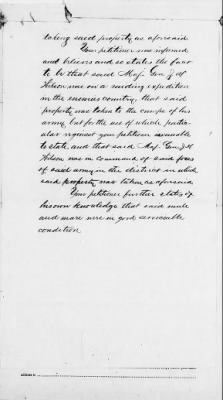 taking said property as aforesaid
Your petitioner was informed
and believes and so states the fact
to be that said Maj. Gen J H
Wilson was on a raiding expedition
in the enemies country, that said
property was taken to the camps of his
army but for the use of which particu-
lar regiment your petitioner is unable
to state and that said Maj. Gen J H
Wilson was in command of said forces
of said army in the district in which
said property was taken as aforesaid
Your petitioner further states of
his own knowledge that said mule
and mare were in good serviceable
condition